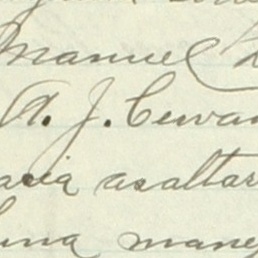 Manuel
A. J. Cevan
acia asaltar
una mane